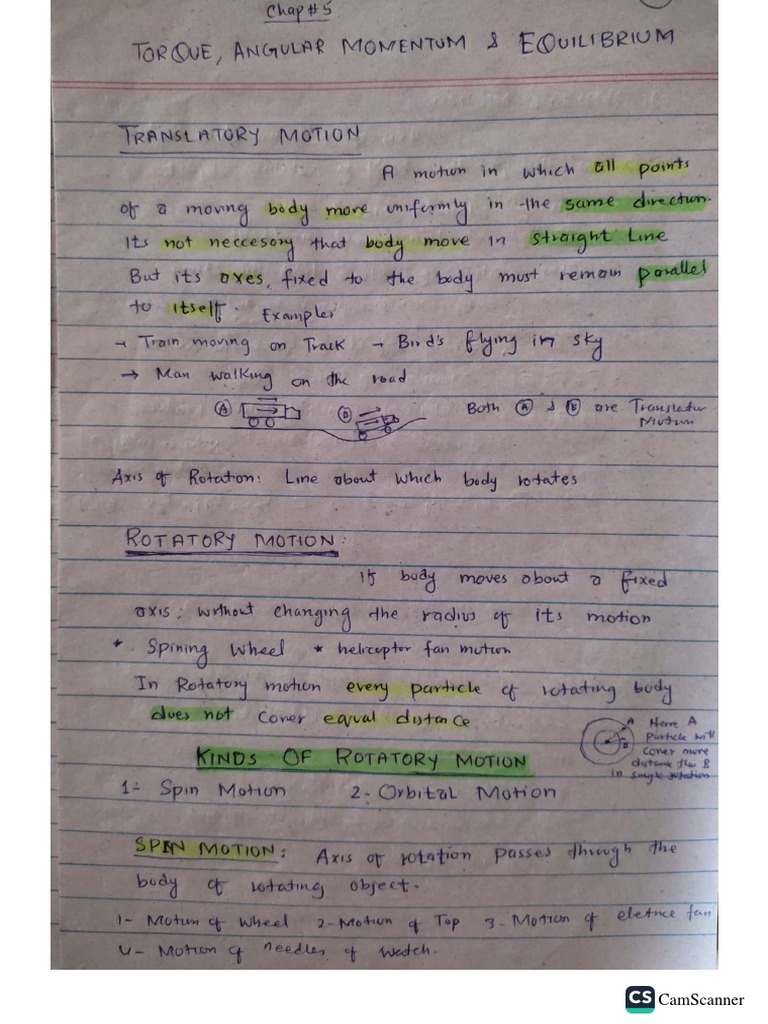 Chap # 5
TORQUE, ANGULAR MOMENTUM & EQUILIBRIUM
TRANSLATORY MOTION
A motion in which all points
of a moving body move uniformly in the same direction.
Its not neccesory that body move in straight Line
But its axes, fixed to the body must remain parallel
to itself. Examples
→ Train moving on Track → Bird's flying in sky
→ Man walking on the road
A B Both A & B are Translatory
Motion
Axis of Rotation: Line about which body rotates
ROTATORY MOTION:
If body moves about a fixed
axis; without changing the radius of its motion
* Spining Wheel * helicopter fan motion
In Rotatory motion every particle of rotating body
does not cover equal distance
A B Here A
Particle will
cover more
distance than B
in single rotation
KINDS OF ROTATORY MOTION
1- Spin Motion 2- Orbital Motion
SPIN MOTION: Axis of rotation passes through the
body of rotating object.
1- Motion of Wheel 2- Motion of Top 3- Motion of eletrice fan
4- Motion of needles of watch.
CS CamScanner